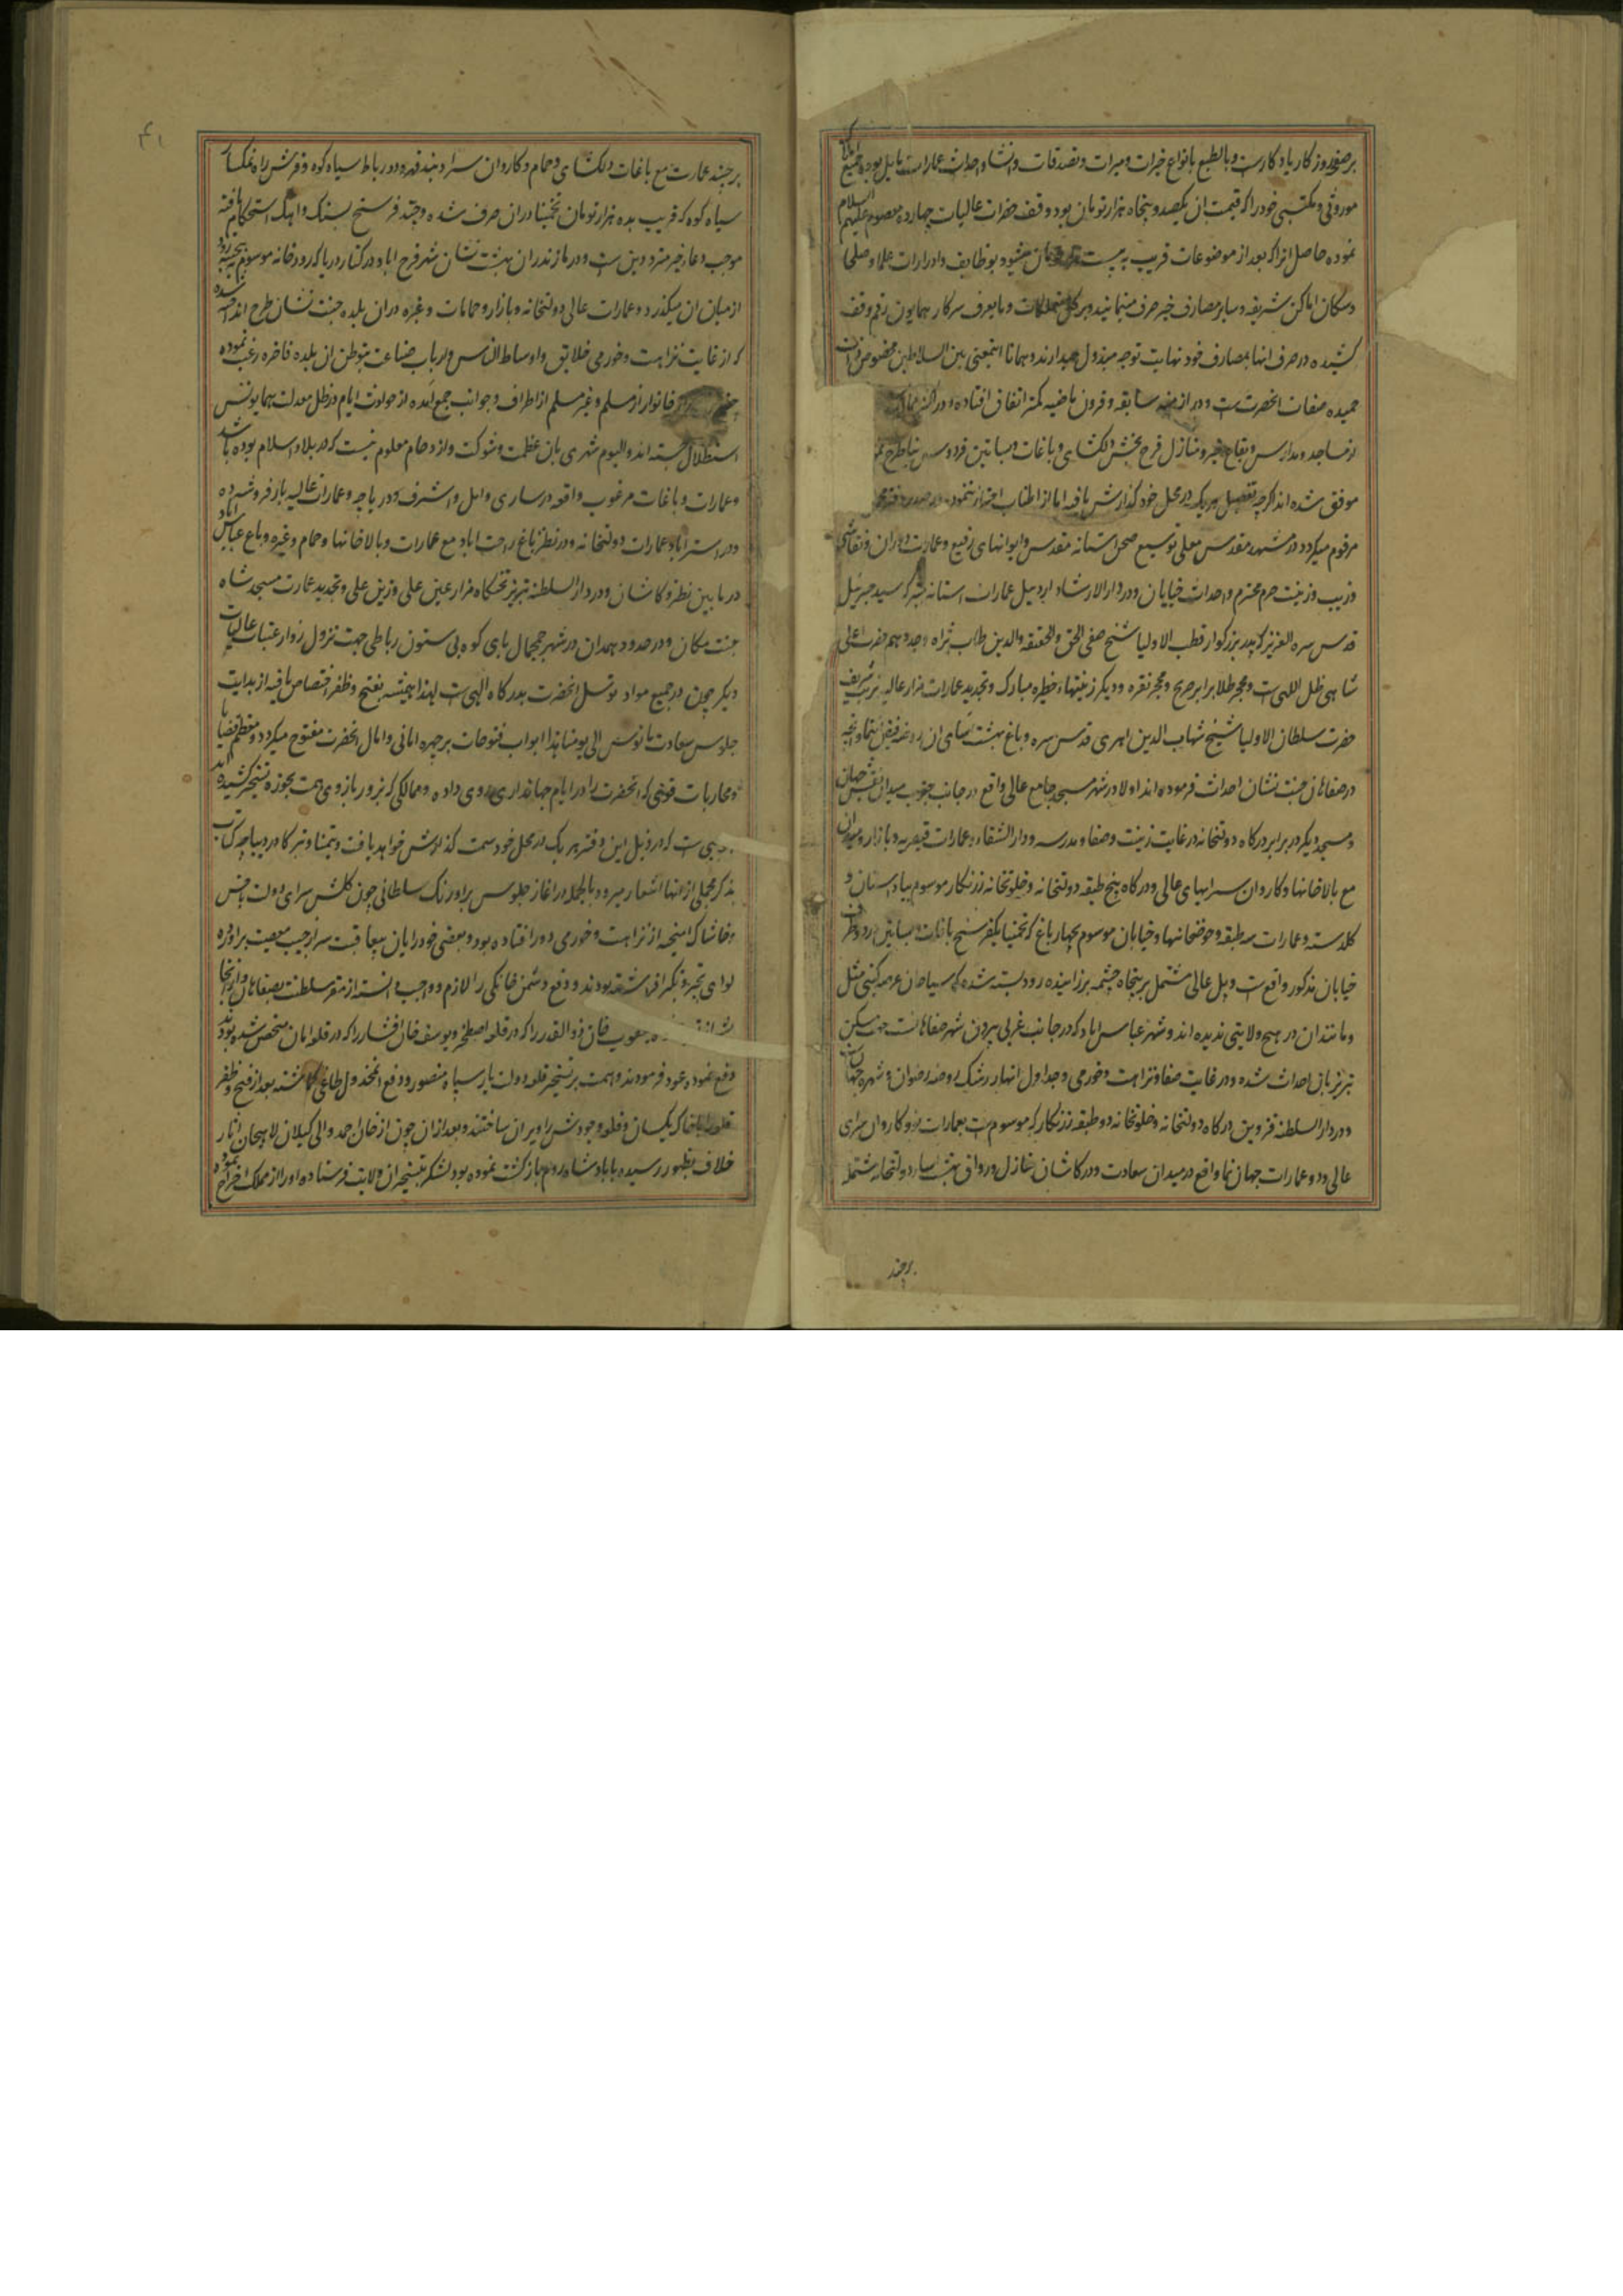 بر صفحه روزکار یادکارست و بالطبع بانواع خیرات و مبرات و تصدقات و انشا و احداث عمارات مایل بوده جمیع املاک
موروثی و مکتسبی خود را که قیمت ان یکصد و پنجاه هزار تومان بود وقف حضرات عالیات چهارده معصوم علیهم السلام
نموده حاصل انرا که بعد از موضوعات قریب به بیست مان میشود بوظایف و ادرارات علما و صلحا
و سکان اماکن شریفه و سایر مصارف خیر صرف مینمایند و بر کل متملکات و مایعرف سرکار همایون رقم وقف
کشیده در صرف انها بمصارف خود نهایت توجه مبذول میدارند و همانا اینمعنی بین السلاطین مخصوص ذات
حمیده صفات انحضرت ست و در ازمنه سابقه و قرون ماضیه کمتر اتفاق افتاده و در اکثر ممالک
از مساجد و مدارس و بقاع خیر و منازل فرح بخش دلکشای و باغات و بساتین فردوس نما طرح
موفق شده اند اکرچه تفصیل هر یک در محل خود کذارش یافته اما از اطناب احتراز ننموده در
مرقوم میکردد در مشهد مقدس معلی توسیع صحن استانه مقدس و ایوانهای رفیع و عمارت و نقاشی
و زیب و زینت حرم محترم و احداث خیابان و در دارالارشاد اردبیل عمارات استانه سید جبرئیل
قدس سره العزیز که پدر بزرکوار قطب الاولیا شیخ صفی الحق و الحقیقه والدین طاب ثراه و جد حضرت اعلی
شاهی ظل اللهی ست و محجر طلا برابر ضریح و محجر نقره و دیکر زینتهاء خطیره مبارک و تجدید عمارات مزار عالیه تربت شریف
حضرت سلطان الاولیا شیخ شهاب الدین اهری قدس سره و باغ بهشت اسای ان روضه فیض
در صفاهان جنت نشان احداث فرموده اند اولا در شهر مسجد جامع عالی واقع در جانب جنوب میدان نقش جهان
و مسجد دیکر در برابر درکاه دولتخانه در غایت زینت و صفا و مدرسه و دارالشفاء و عمارات قیصریه و بازار و میدان
مع بالاخانها و کاروان سراهای عالی و درکاه پنج طبقه دولتخانه و خلوتخانه زرنکار موسوم
کلدسته و عمارات سه طبقه و حوضخانها و خیابان موسوم بچهارباغ که تخمینا یکفرسنخ باغات و بساتین دو طرف
خیابان مذکور واقع ست و پل عالی مشتمل بر پنجاه چشمه بر زاینده رود بسته شده که سیاحان عرصه کیتی مثل
و مانند ان در هیچ ولایتی ندیده اند و شهر عباس اباد که در جانب غربی بیرون شهر صفاهانست جهت سکن
تبریزیان احداث شده و در غایت صفا و نزاهت و خورمی و جداول انهار رشک روضه رضوان و شهره جهان
و در دارالسلطنه قزوین درکاه دولتخانه و خلوتخانه دو طبقه زرنکار که موسوم ست بعمارات نو و کاروان سرای
عالی و دو عمارات جهان نما واقع در میدان سعادت و در کاشان منازل و رواق بهشت دولتخانه مشتمله
بر چند
بر چند عمارت مع باغات دلکشای و حمام و کاروان سرا و بند قهرود و رباط سیاه کوه و فرش راه نمکسار
سیاه کوه که قریب بده هزار تومان تخمینا دران صرف شده و چند فرسنخ بسنک و اهک استحکام یافته
موجب دعاء خیر مترددین ست و در مازندران بهشت نشان شهر فرح اباد در کنار دریا که رودخانه موسوم به تجینه رود
از میان ان میکذرد و عمارات عالی دولتخانه و بازار و حمامات و غیره دران بلده جنت نشان طرح انداخته شده
که از غایت نزاهت و خورمی خلایق و اوساط الناس و ارباب صناعت بتوطن ان بلده فاخره رغبت نموده
خانوار از مسلم و غیر مسلم از اطراف و جوانب جمع آمده از حوادث ایام در ظل معدلت همایونش
استظلال جسته اند و الیوم شهری بان عظمت و شوکت و ازدحام معلوم نیست که در بلاد اسلام بوده باشد
و عمارات و باغات مرغوب واقعه در ساری و امل و اشرف و دریاچه و عمارات عالیه بارفروشده
و در استراباد عمارات دولتخانه و در نطنز باغ راحت اباد مع عمارات و بالاخانها و حمام و غیره و باغ عباس اباد
در مابین نطنز و کاشان و در دارالسلطنه تبریز تختکاه مزار عین علی و زین علی و تجدید عمارت مسجد شاه
جنت مکان و در حدود همدان در شهر چمچمال پای کوه بی ستون رباطی جهت نزول زوار عتبات عالیات
دیکر چون در جمیع مواد توسل انحضرت بدرکاه الهی ست لهذا همیشه بفتح و ظفر اختصاص یافته از بدایت
جلوس سعادت مانوس الی یومنا هذا ابواب فتوحات بر چهره امانی و امال انحضرت مفتوح میکردد و معظم قضایا
و محاربات قوی که انحضرت را در ایام جهانداری روی داده و ممالکی که بزور بازوی همت بحوزه تسخیر کشیده اند
ست که در ذیل این دفتر هر یک در محل خود سمت کذارش خواهد یافت و تیمنا و تبرکا در دیباجه کتاب
بذکر مجملی از انها اشعار میرود بالجمله در اغاز جلوس بر اورنک سلطانی چون کلشن سرای دولت بخس
و خاشاک امیخته از نزاهت و خورمی دور افتاده بود و بعضی خود رایان بیعاقبت سر از جیب معصیت براورده
لوای تجبر و تکبر افراشته بودند و دفع دشمن خانکی را لازم و واجب دانسته از مقر سلطنت بصفاهان و از انجا
یعقوب خان ذوالقدر را که در قلعه اصطخر و یوسف خان افشار را که در قلعه متحصن شده بودند
دفع نموده عود فرمودند و همت بر تسخیر قلعه دولت یار سیاه منصور و دفع انمخذول طاغی کماشته بعد از فتح و ظفر
قلعه را با خاک یکسان و قلعه وجودش را ویران ساختند و بعد ازان چون از خان احمد والی کیلان لاهیجان اثار
خلاف بظهور رسیده با پادشاه روم بازکشت نموده بود لشکر بتسخیر ان ولایت فرستاده او را از مملکت اخراج نموده